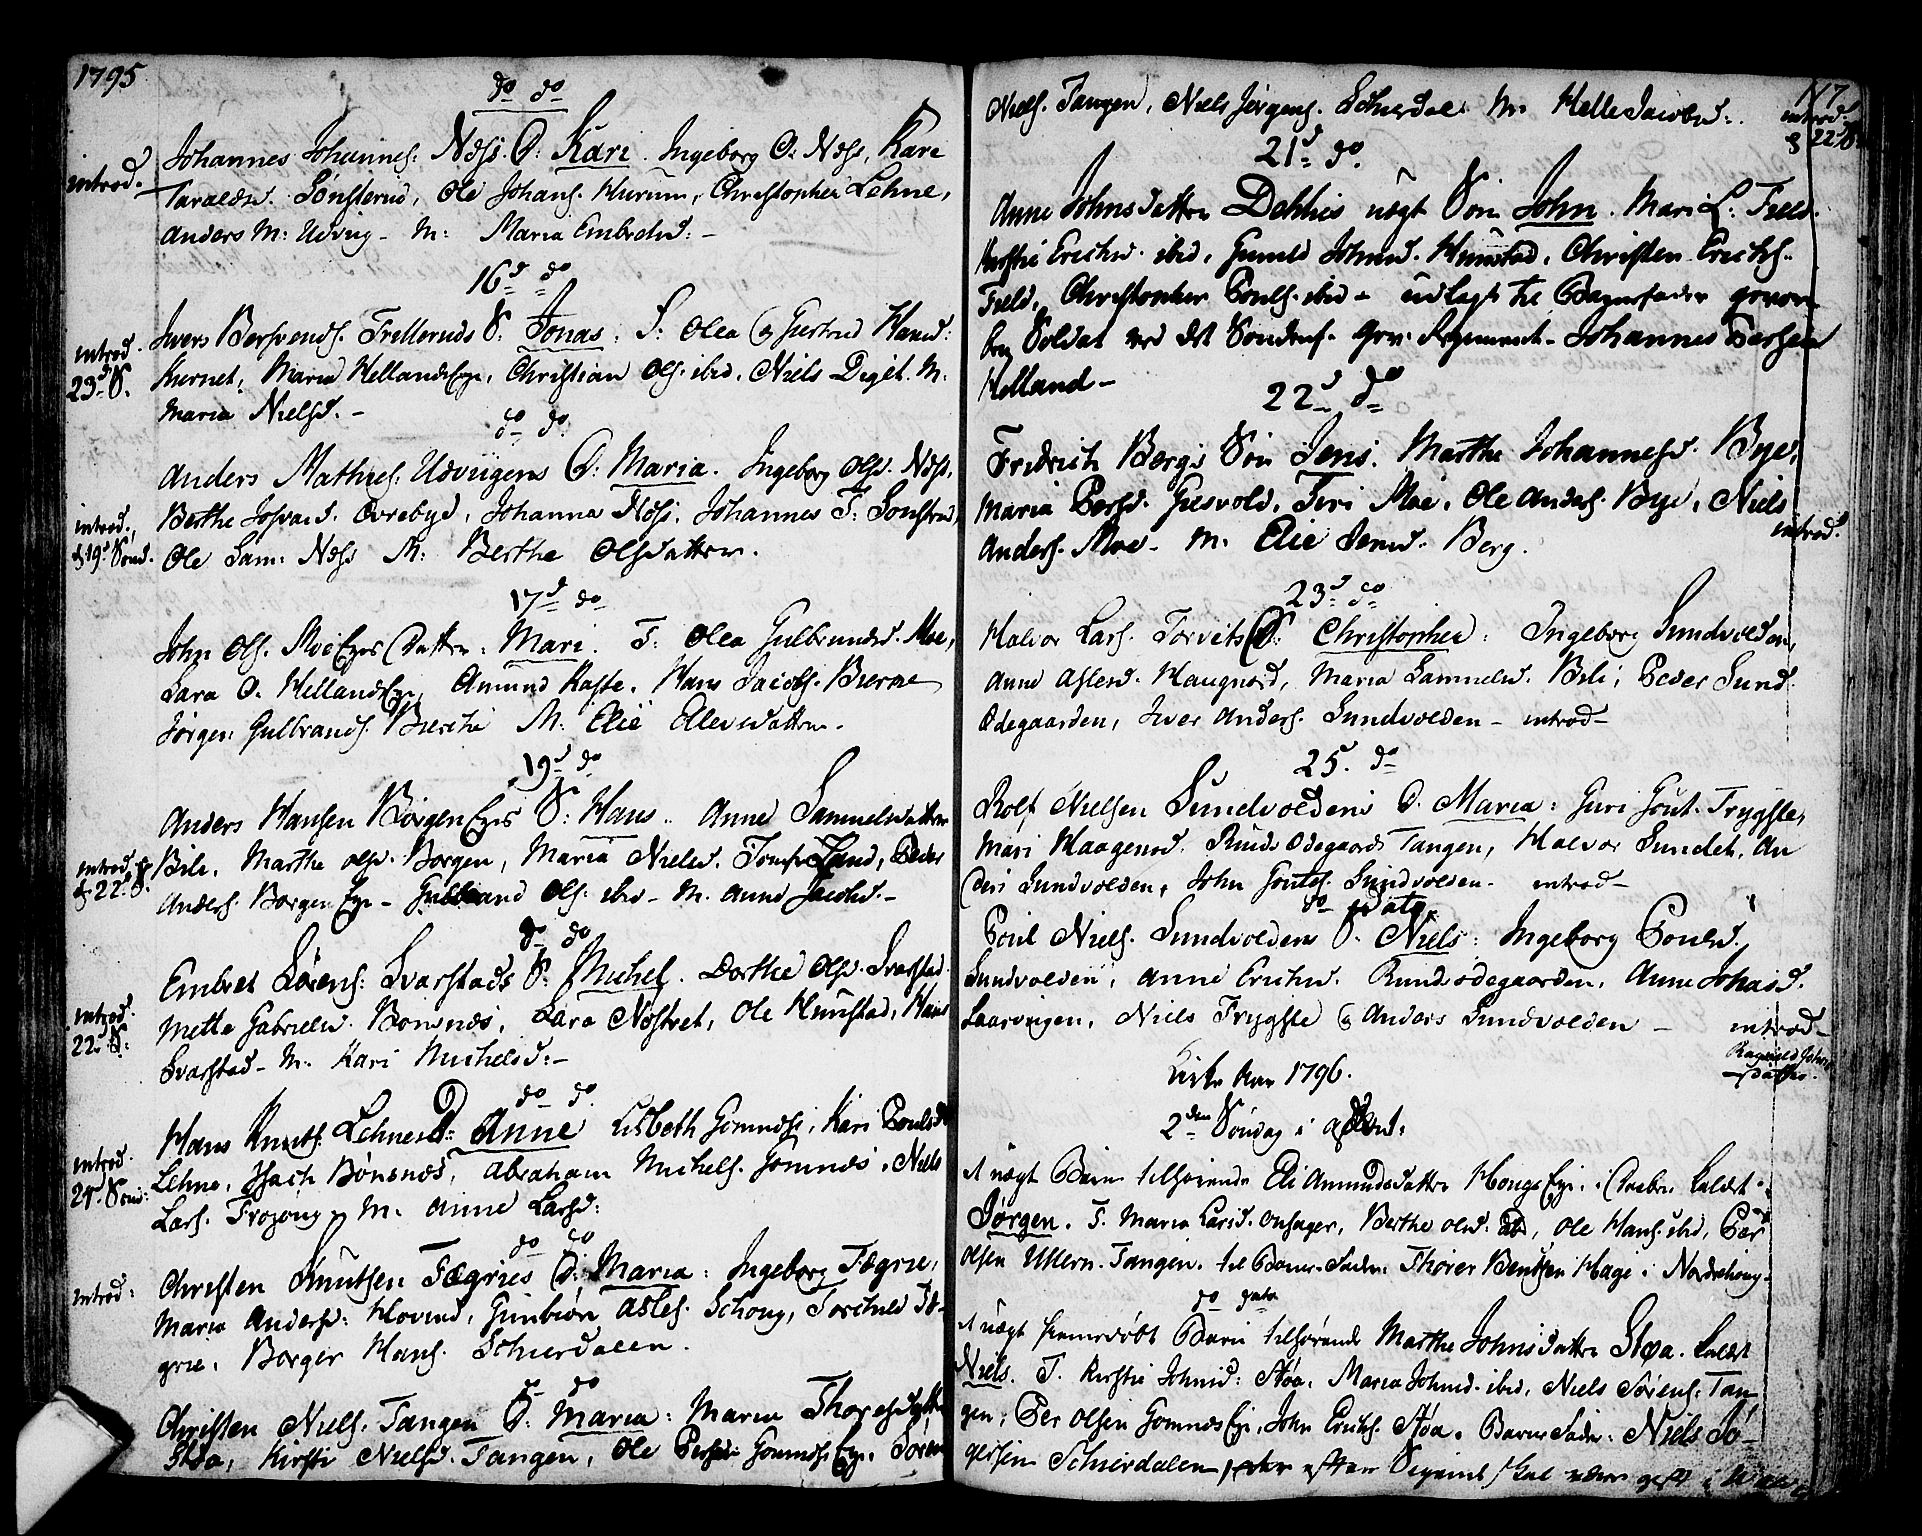 1795
do do
introd. Johannes Johannes: Næss. D: Kari. Ingeborg O. Næss, Kari
Taraldsd. Sønsterud, Ole Johans. Hurum, Christopher Lehne,
Anders M: Udvig - M: Maria Embretsd: -
16d do
introd. Ivers Berþvends. Trellerud S: Jonas. S: Olea Giertrud Hansd:
23d S. Kiernet, Maria HellandsEje, Christian Ols. ibid. Niels Diget. M:
Maria Nielsd. -
do do
Anders Mathies: Udvigens D: Maria. Ingeborg Olsd. Næss,
introd. Berthe Evrebye, Johanna Næss, Johannes T: Sonsterud,
d 19d Sønd. Ole Sam: Næss M: Berthe Olsdatter.
17d do
John Ols. MoeEjes Datter: Mari. T: Olea Gulbrandsd. Moe,
Lara O. HellandsEje, Amund Raste. Hans Jacobs. Bierche
Jørgen Gulbrands. Bierche M: Elie Ellevsdatter.
19d do
Anders Hansen BorgenEjes S: Hans. Anne Samuelsdatter
introd. Bili, Marthe Olsd. Borgen, Maria Nielsd. Sand, Peder
d 22d S. Anders. BorgenEje - Gulbrand Ols. ibid - M. Anne Jacobsd. -
do do
Embret Sørens: Svarstads S: Michel. Dorthe Olsd. Svarstad
introd. Mette Gabrielsd. Bønsnæs, Lara Nøstret, Ole Hunstad, Hans
22d S: Svarstad - M. Kari Michelsd: -
do do
Hans Knuts. Lehnes D: Anne Lisbeth Gomnæss, Kari Poulsd
introd. Lehne, Isach Bønsnæs, Abraham Michels. Gomnæs. Niels
24d Sønd: Lars. Frogong M. Anne Larsd:
do do
introd: Christen Knutsen Fægries D: Maria: Ingeborg Fægrie,
Maria Andersd: Hovind, Gunbiør Asles. Schong, Torchild Fæ-
grie, Borger Hans. Schierdalen.
do do
Christen Niels. Tangen D: Maria: Maria Thoresdatter
Støa, Kirsti Nielsd. Tangen, Ole Persen GomnæssEje, Søren
117
Niels. Tangen, Niels Jørgens. Schierdal. M. Helle Jacobsd:. introd.
d 22d S.
21d do.
Anne Johnsdatter Dehlies uægt Søn John. Mari L: Field.
Kirsti Erichsd. ibid, Gunild Johnsd. Hunstad, Christen Erichs.
Field, Christopher Pouls. ibid - udlagt til Barnefader
Soldat ved det Søndenf. Gev. Regiment - Johannes
Helland -
22d do
Fredrich Bergs Søn Jens. Marthe Johannesd. Bye,
Maria Persd. Giesvold, Siri Moe, Ole Anders. Bye, Niels
Anders. Moe - M. Elie Jensd. Berg. introd.
23d do
Halvor Lars. Torvets S: Christopher: Ingeborg Sundvolden,
Anne Aslesd. Haugnord, Maria Samuelsd. Bili, Peder Sund.
Ødegaarden, Iver Anders. Sundvolden - introd -
25. do
Rolf Nielsen Sundvoldens D. Maria: Guri Gout. Trygstle,
Mari Haagensd. Ruuds Ødegaard Tangen, Halvor Sundet, An
ders Sundvolden, John Goutes. Sundvolden - introd -
do dato
Poul Niels. Sundvoldens S. Niels: Ingeborg Poulsd.
Sundvolden, Anne Erichsd. Rundsødegaarden, Anne Johasd.
Laarvigen, Niels Trygstle & Anders Sundvolden - introd -
Ragnild Johns
datter.
Kirke Aar 1796.
2den Søndag i Advent:
et uægt Barn tilhørende Eli Amundsdatter HongsEje i Daaben kaldet
Jørgen. F. Maria Larsd. Onsager, Berthe Olsd: ibd, Ole Hans. ibd, Per
Olsen Ullern. Tangen. til Barne-Fader Thorer Bentsen Hage i Norderhoug
do dato
et uægt hiemdøbt Barn tilhørende Marthe Johnsdatter Støa. kaldet
Niels. F. Kirstie Johnsd: Støa, Maria Johnsd. ibid, Niels Sørens: Tan-
gen, Per Olsen GomnæsEje, John Erichs. Støa. BarneFader: Niels Jø-
gensen Schierdalen efter Sigende skal være gift i